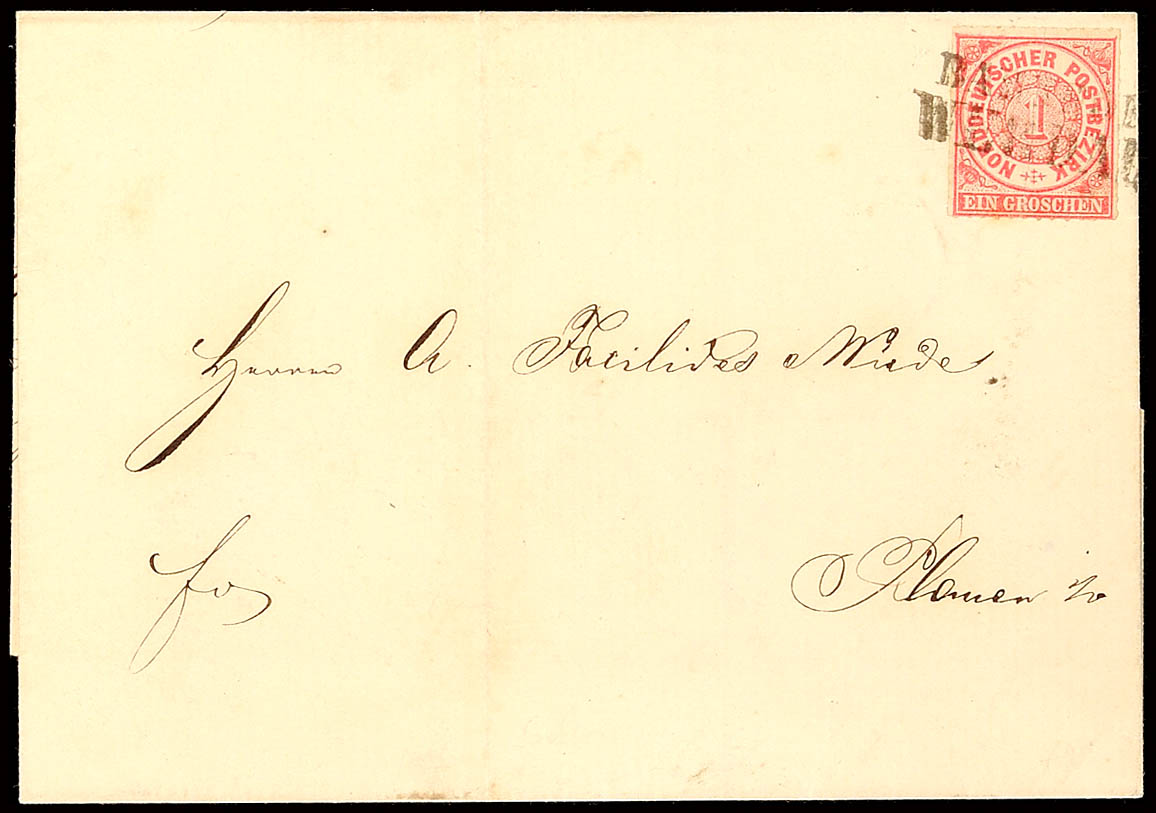 NORDDEUTSCHER POSTBEZIRK
1
EIN GROSCHEN
Herren A. Facilides & Wiede
fo
Plauen i/v